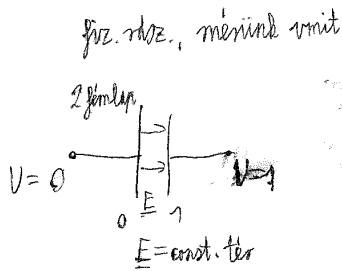 fiz. rdsz., mérünk vmit
2 fémlap
V = 0
V=1
E
0 1
E = const. tér